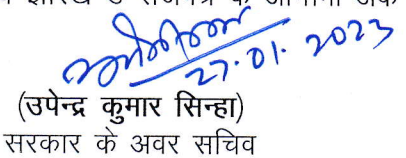 27.01.2023
(उपेन्द्र कुमार सिन्हा)
सरकार के अवर सचिव